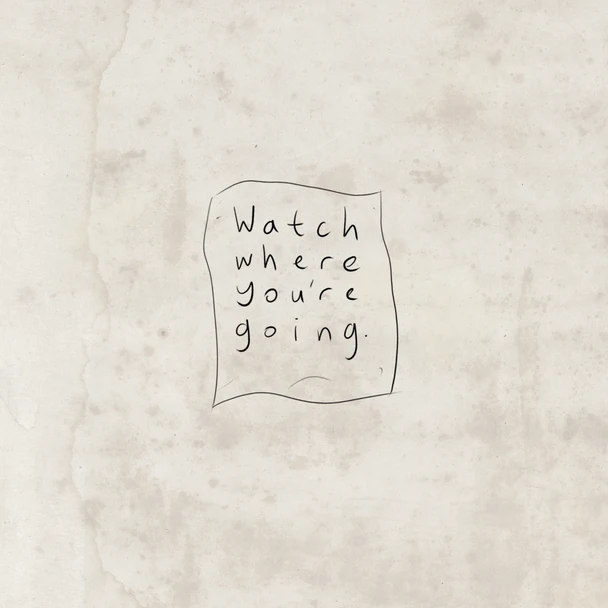 Watch
where
you're
going.